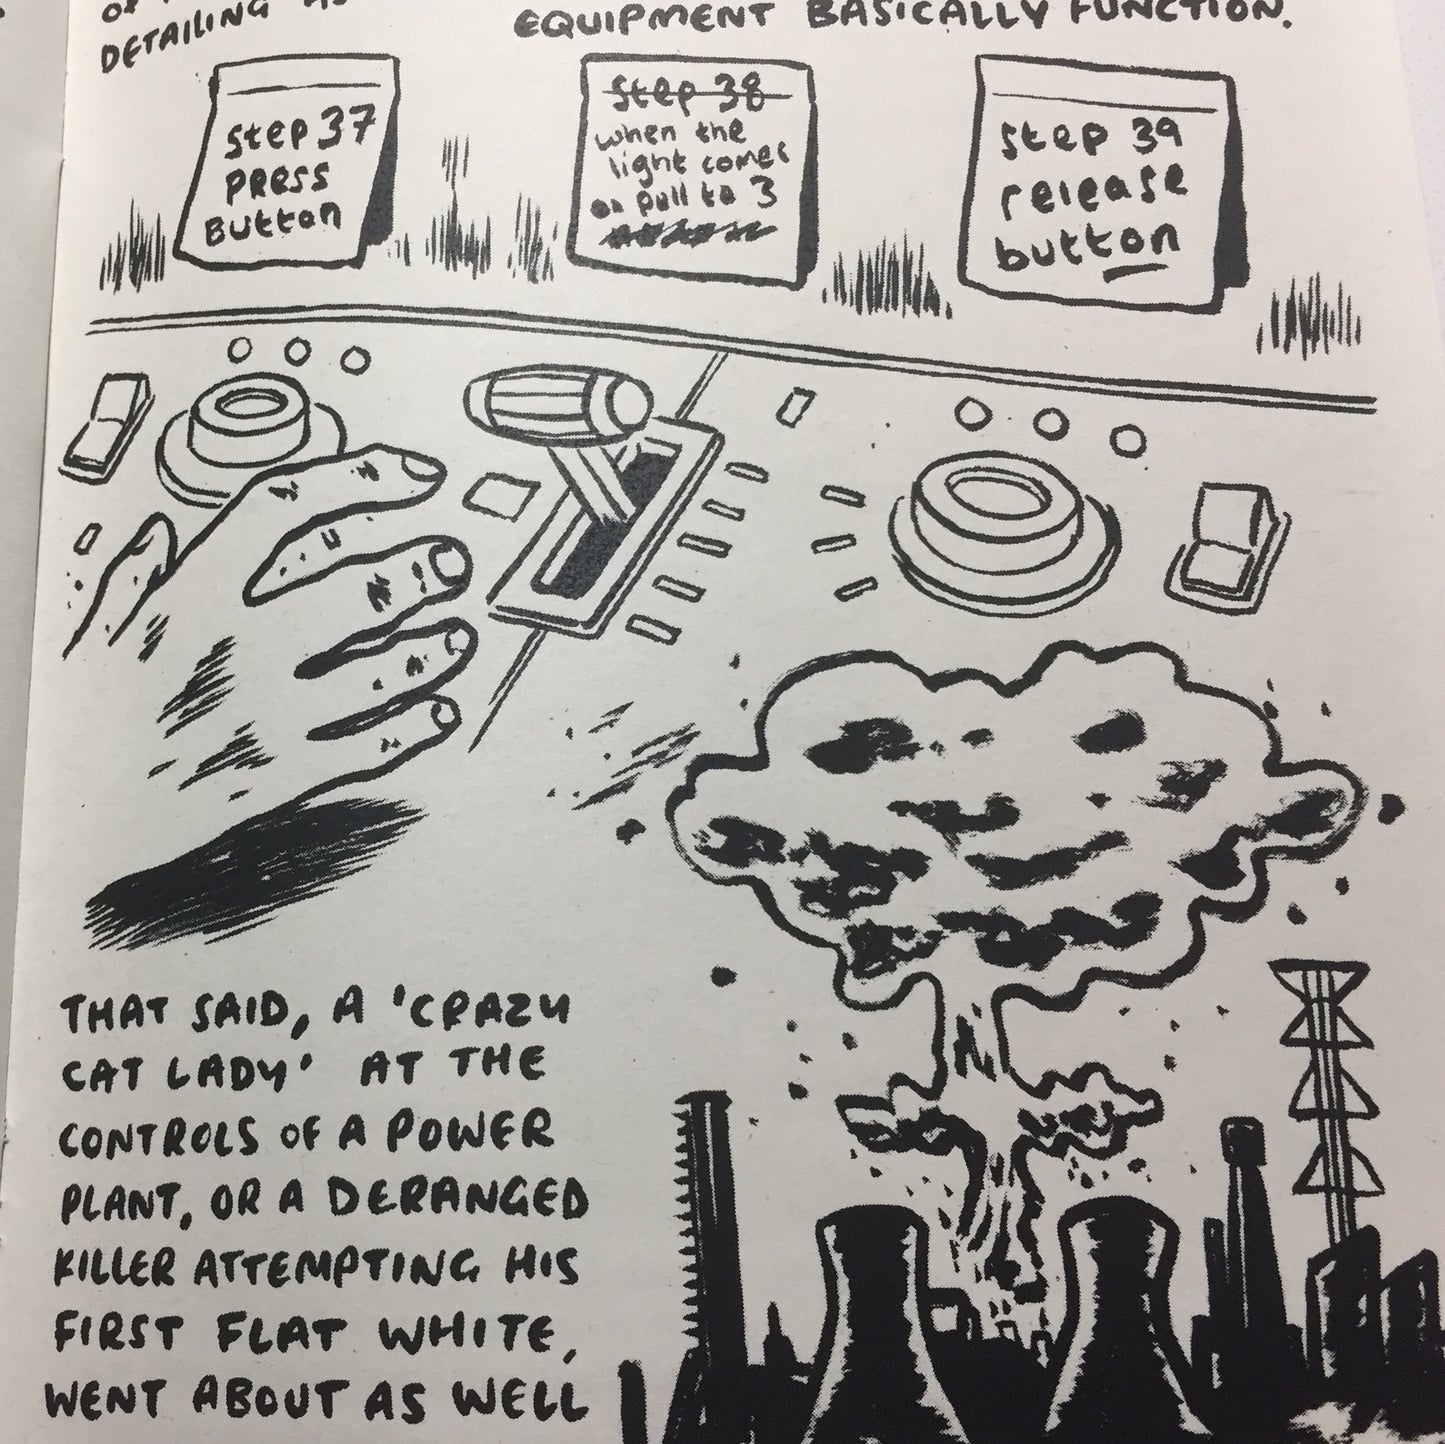 DETAILING
EQUIPMENT BASICALLY FUNCTION.
Step 37
PRESS
BUTTON
Step 38
when the
light comes
on pull to 3
Step 39
release
button
THAT SAID, A 'CRAZY
CAT LADY' AT THE
CONTROLS OF A POWER
PLANT, OR A DERANGED
KILLER ATTEMPTING HIS
FIRST FLAT WHITE,
WENT ABOUT AS WELL